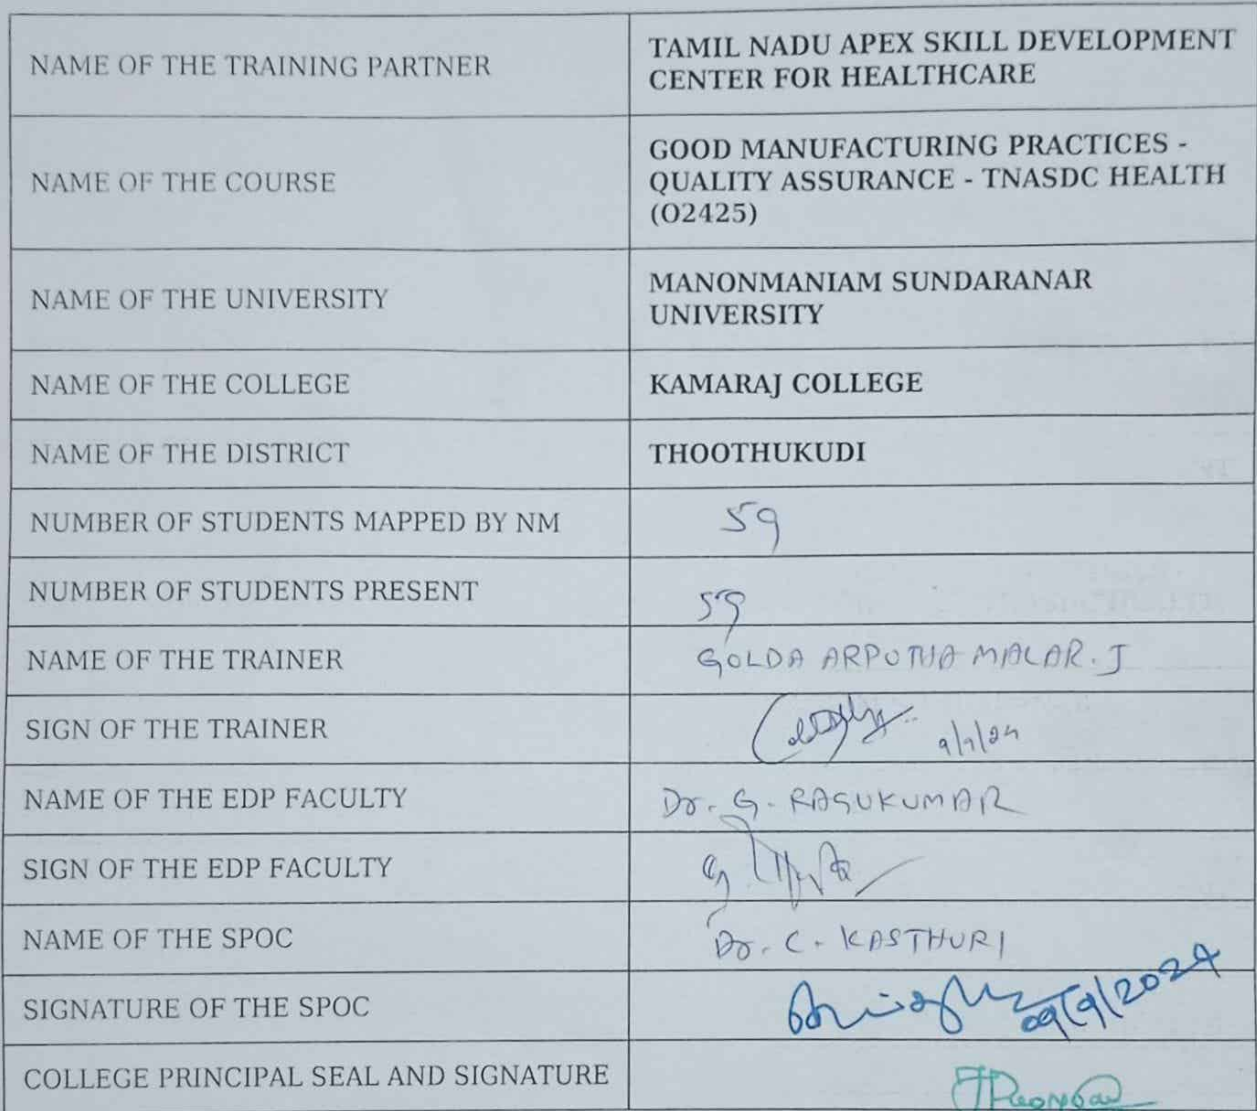 NAME OF THE TRAINING PARTNER
TAMIL NADU APEX SKILL DEVELOPMENT
CENTER FOR HEALTHCARE
NAME OF THE COURSE
GOOD MANUFACTURING PRACTICES -
QUALITY ASSURANCE - TNASDC HEALTH
(O2425)
NAME OF THE UNIVERSITY
MANONMANIAM SUNDARANAR
UNIVERSITY
NAME OF THE COLLEGE
KAMARAJ COLLEGE
NAME OF THE DISTRICT
THOOTHUKUDI
NUMBER OF STUDENTS MAPPED BY NM
59
NUMBER OF STUDENTS PRESENT
59
NAME OF THE TRAINER
GOLDA ARPUTHA MALAR. J
SIGN OF THE TRAINER
9/9/24
NAME OF THE EDP FACULTY
Dr. G. RAGUKUMAR
SIGN OF THE EDP FACULTY
NAME OF THE SPOC
Dr. C. KASTHURI
SIGNATURE OF THE SPOC
09/9/2024
COLLEGE PRINCIPAL SEAL AND SIGNATURE